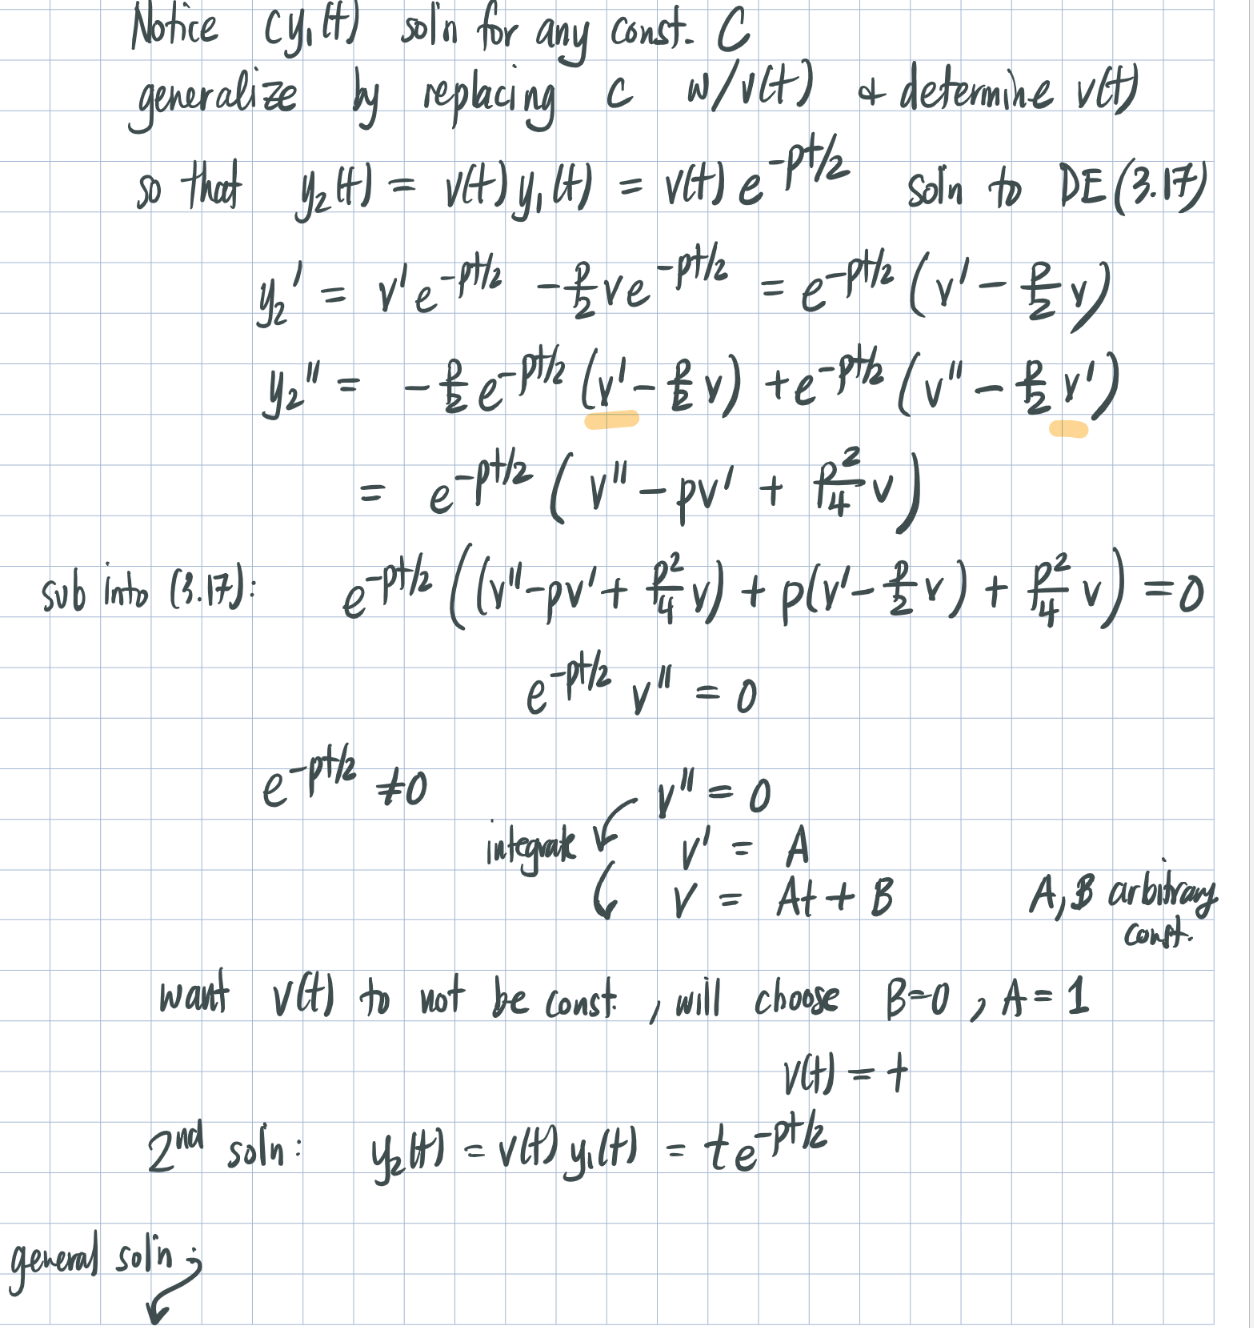 Notice cy₁(t) soln for any const. C
generalize by replacing c w/v(t) & determine v(t)
so that y₂(t) = v(t) y₁(t) = v(t) e^(-pt/2) soln to DE (3.17)
y₂' = v' e^(-pt/2) - p/2 v e^(-pt/2) = e^(-pt/2) (v' - p/2 v)
y₂'' = - p/2 e^(-pt/2) (v' - p/2 v) + e^(-pt/2) (v'' - p/2 v')
= e^(-pt/2) (v'' - pv' + p²/4 v)
sub into (3.17): e^(-pt/2) ((v'' - pv' + p²/4 v) + p(v' - p/2 v) + p²/4 v) = 0
e^(-pt/2) v'' = 0
e^(-pt/2) ≠ 0 v'' = 0
integrate v' = A
v = At + B A, B arbitrary
const.
want v(t) to not be const. , will choose B=0 , A = 1
v(t) = t
2nd soln: y₂(t) = v(t) y₁(t) = t e^(-pt/2)
general sol'n :